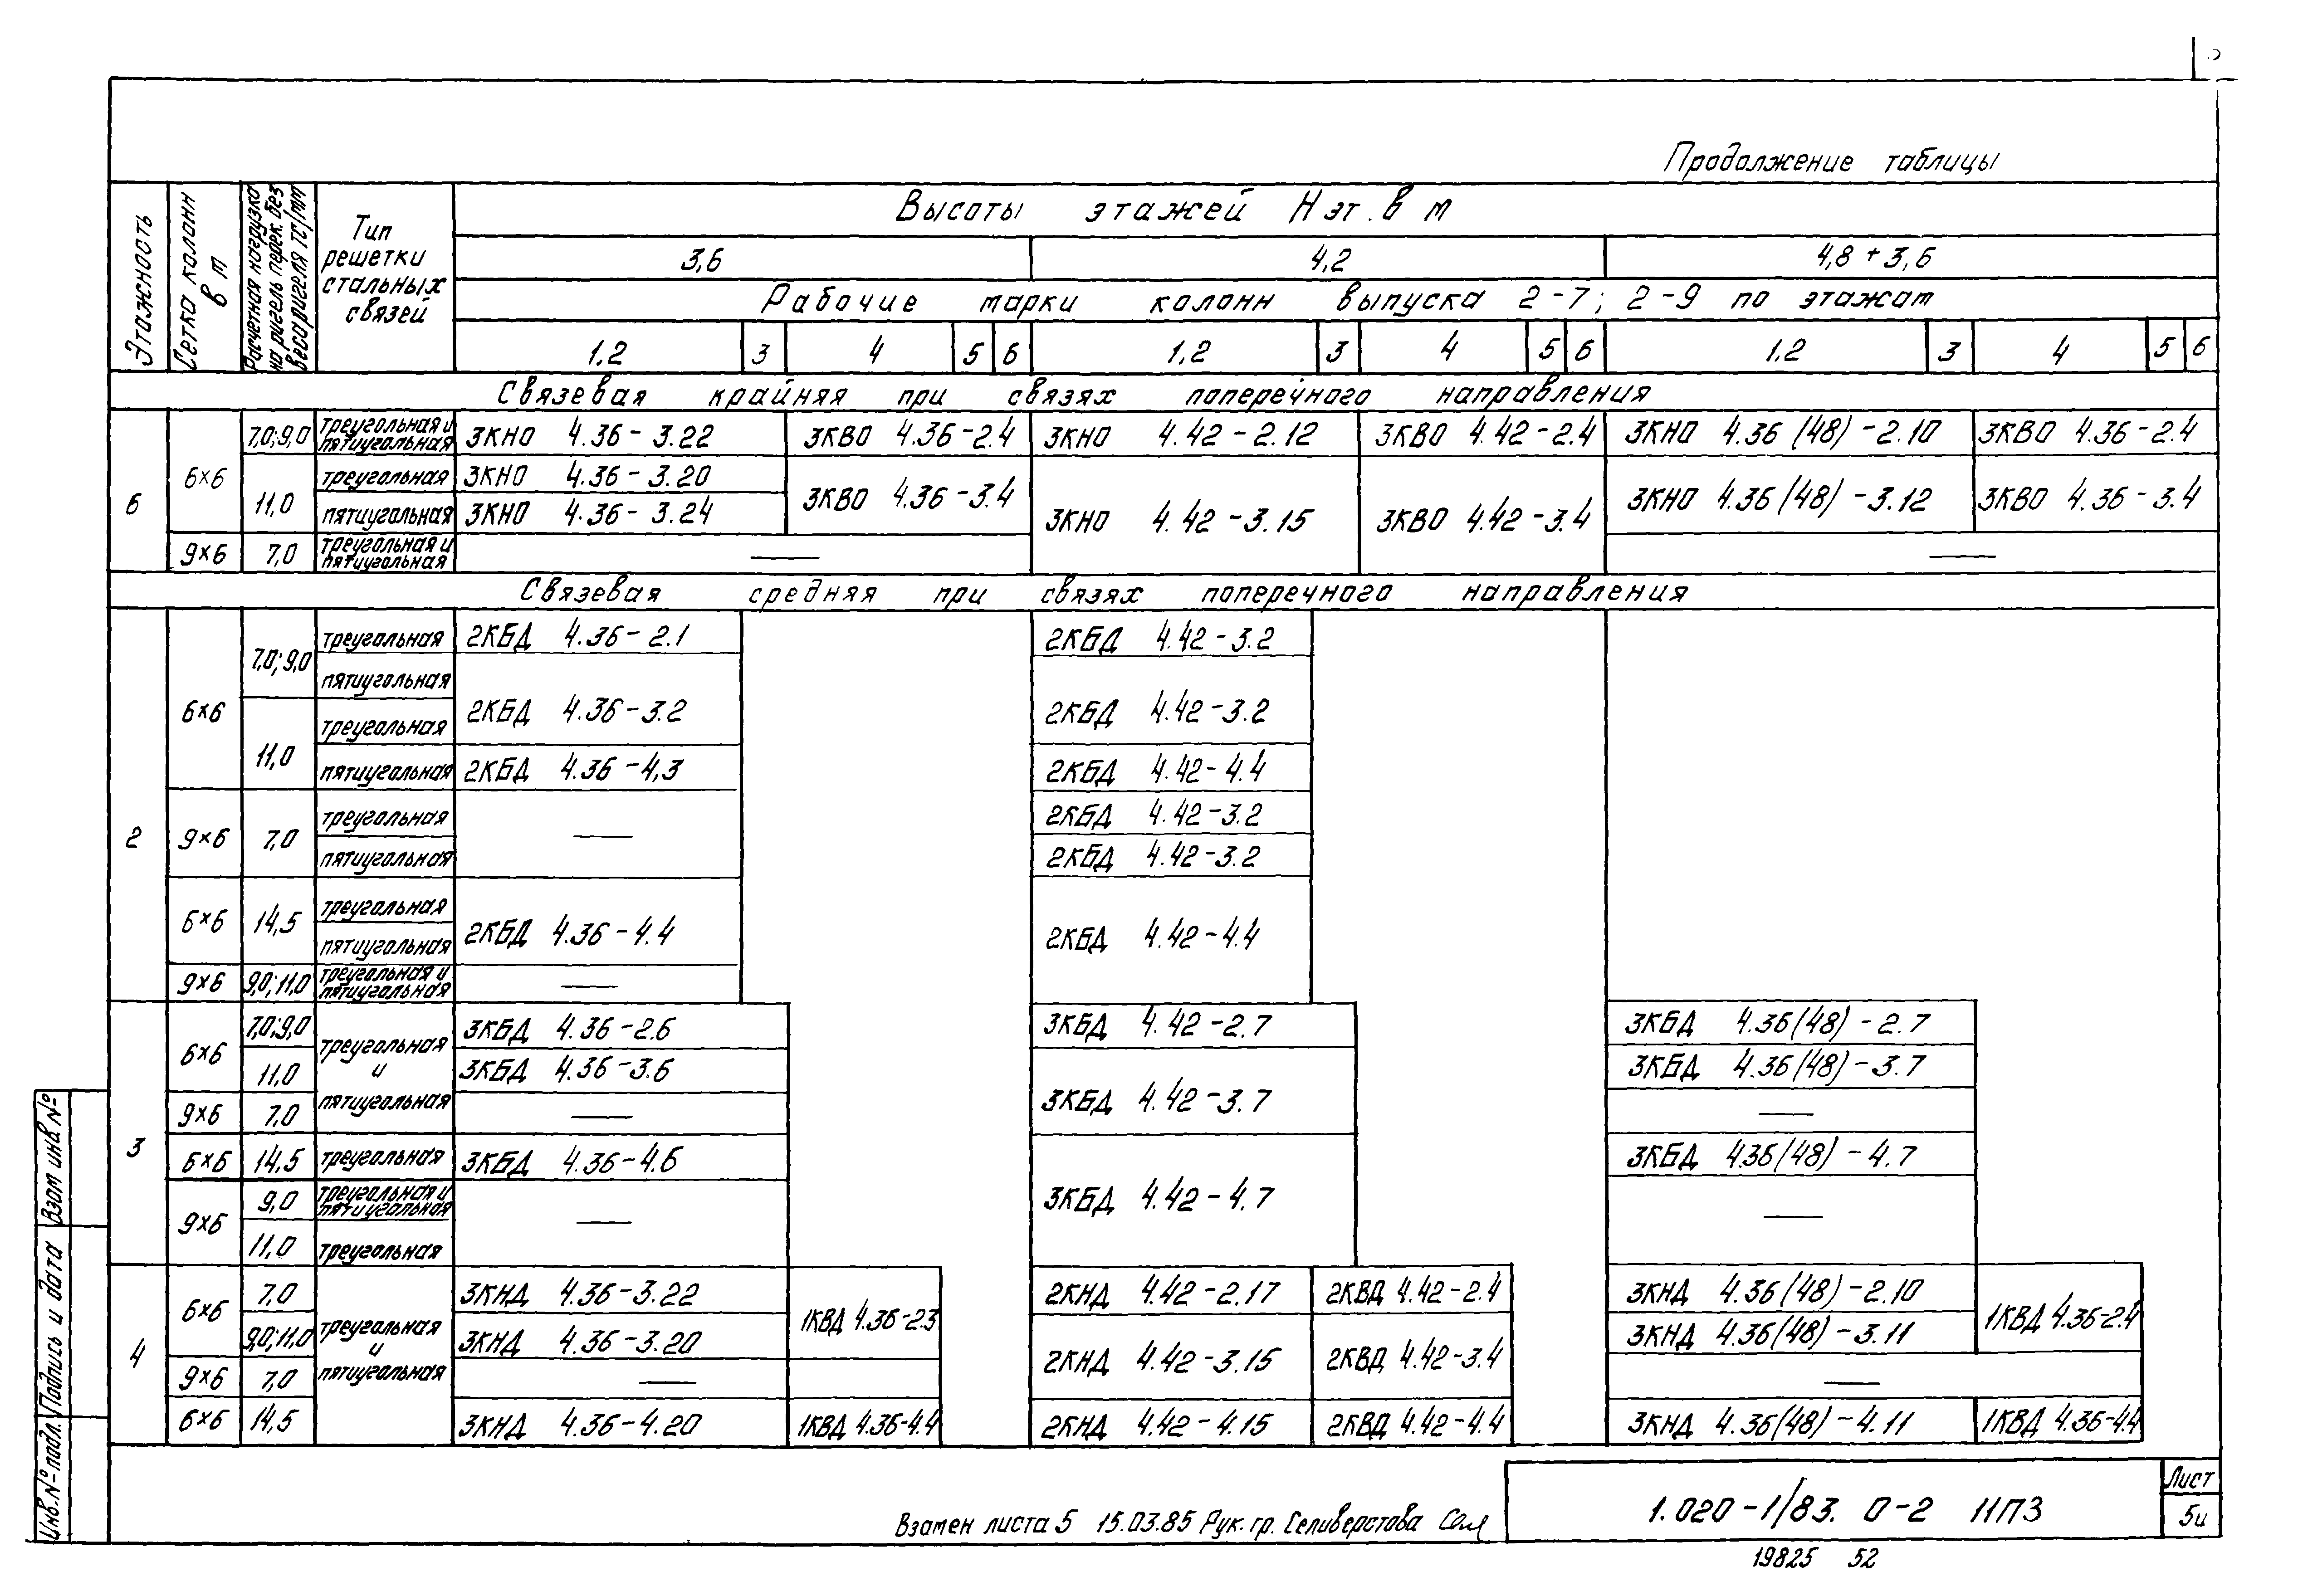 Продолжение таблицы
Этажность
Сетка колонн в м
Расчетная нагрузка на ригель перек. без веса ригеля тс/мм
Тип решетки стальных связей
Высоты этажей Нэт. в м
3,6 4,2 4,8 + 3,6
Рабочие марки колонн выпуска 2-7; 2-9 по этажам
1,2 3 4 5 6 1,2 3 4 5 6 1,2 3 4 5 6
Связевая крайняя при связях поперечного направления
6 6×6 7,0; 9,0 треугольная и пятиугольная 3КНО 4.36-3.22 3КВО 4.36-2.4 3КНО 4.42-2.12 3КВО 4.42-2.4 3КНО 4.36(48)-2.10 3КВО 4.36-2.4
11,0 треугольная 3КНО 4.36-3.20 3КВО 4.36-3.4 3КНО 4.42-3.15 3КВО 4.42-3.4 3КНО 4.36(48)-3.12 3КВО 4.36-3.4
пятиугольная 3КНО 4.36-3.24
9×6 7,0 треугольная и пятиугольная — —
Связевая средняя при связях поперечного направления
2 6×6 7,0; 9,0 треугольная 2КБД 4.36-2.1 2КБД 4.42-3.2
пятиугольная 2КБД 4.36-3.2 2КБД 4.42-3.2
11,0 треугольная
пятиугольная 2КБД 4.36-4,3 2КБД 4.42-4.4
9×6 7,0 треугольная — 2КБД 4.42-3.2
пятиугольная 2КБД 4.42-3.2
6×6 14,5 треугольная 2КБД 4.36-4.4 2КБД 4.42-4.4
пятиугольная
9×6 9,0; 11,0 треугольная и пятиугольная —
3 6×6 7,0; 9,0 треугольная и пятиугольная 3КБД 4.36-2.6 3КБД 4.42-2.7 3КБД 4.36(48)-2.7
11,0 3КБД 4.36-3.6 3КБД 4.42-3.7 3КБД 4.36(48)-3.7
9×6 7,0 — —
6×6 14,5 треугольная 3КБД 4.36-4.6 3КБД 4.42-4.7 3КБД 4.36(48)-4.7
9×6 9,0 треугольная и пятиугольная — —
11,0 треугольная
4 6×6 7,0 треугольная и пятиугольная 3КНД 4.36-3.22 1КВД 4.36-2.3 2КНД 4.42-2.17 2КВД 4.42-2.4 3КНД 4.36(48)-2.10 1КВД 4.36-2.4
9,0; 11,0 3КНД 4.36-3.20 2КНД 4.42-3.15 2КВД 4.42-3.4 3КНД 4.36(48)-3.11
9×6 7,0 — —
6×6 14,5 3КНД 4.36-4.20 1КВД 4.36-4.4 2КНД 4.42-4.15 2КВД 4.42-4.4 3КНД 4.36(48)-4.11 1КВД 4.36-4.4
Инв. № подл. Подпись и дата Взам инв. №
Взамен листа 5 15.03.85 Рук. гр. Селиверстова
1.020-1/83. 0-2 11ПЗ
Лист
5и
19825 52